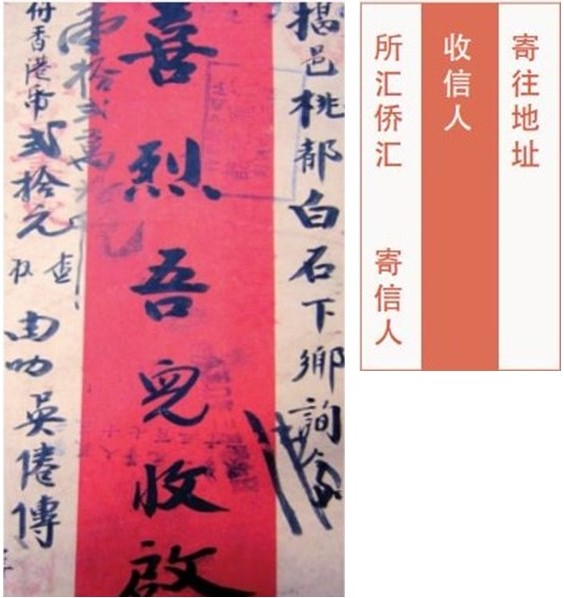 揭邑桃都白石下鄉詢
喜烈吾兒收啟
付香港币貳拾元
查收
由叻吳倦傳
寄往地址
收信人
所汇侨汇
寄信人